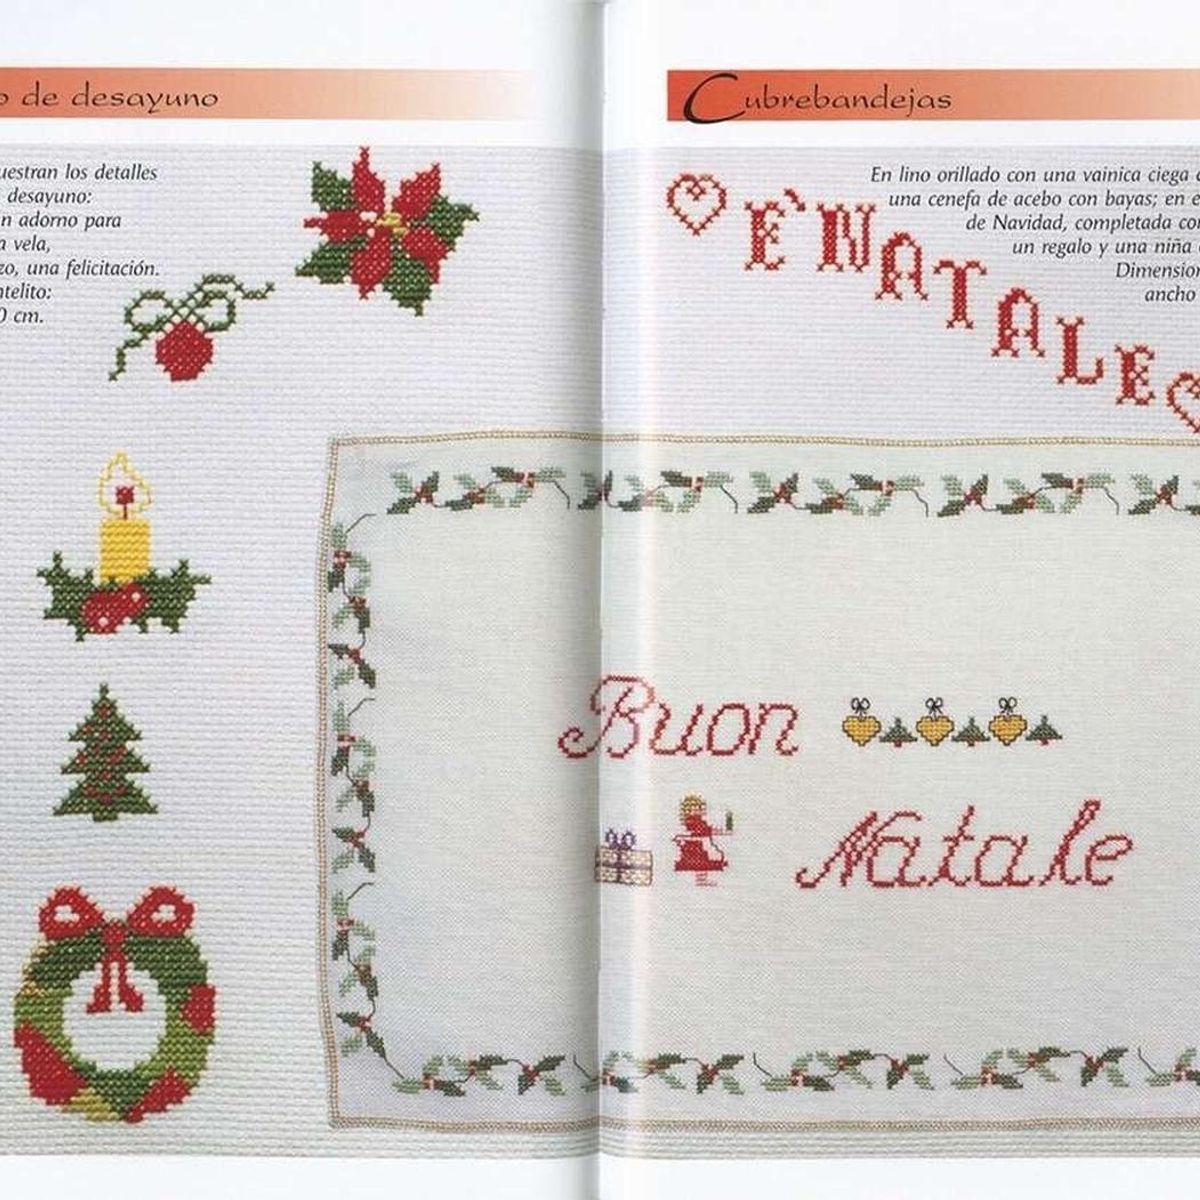 de desayuno
los detalles
desayuno:
adorno para
vela,
una felicitación.
cm.
Cubrebandejas
En lino orillado con una vainica ciega
una cenefa de acebo con bayas; en
de Navidad, completada
un regalo y una niña
ancho
È NATALE
Buon
Natale